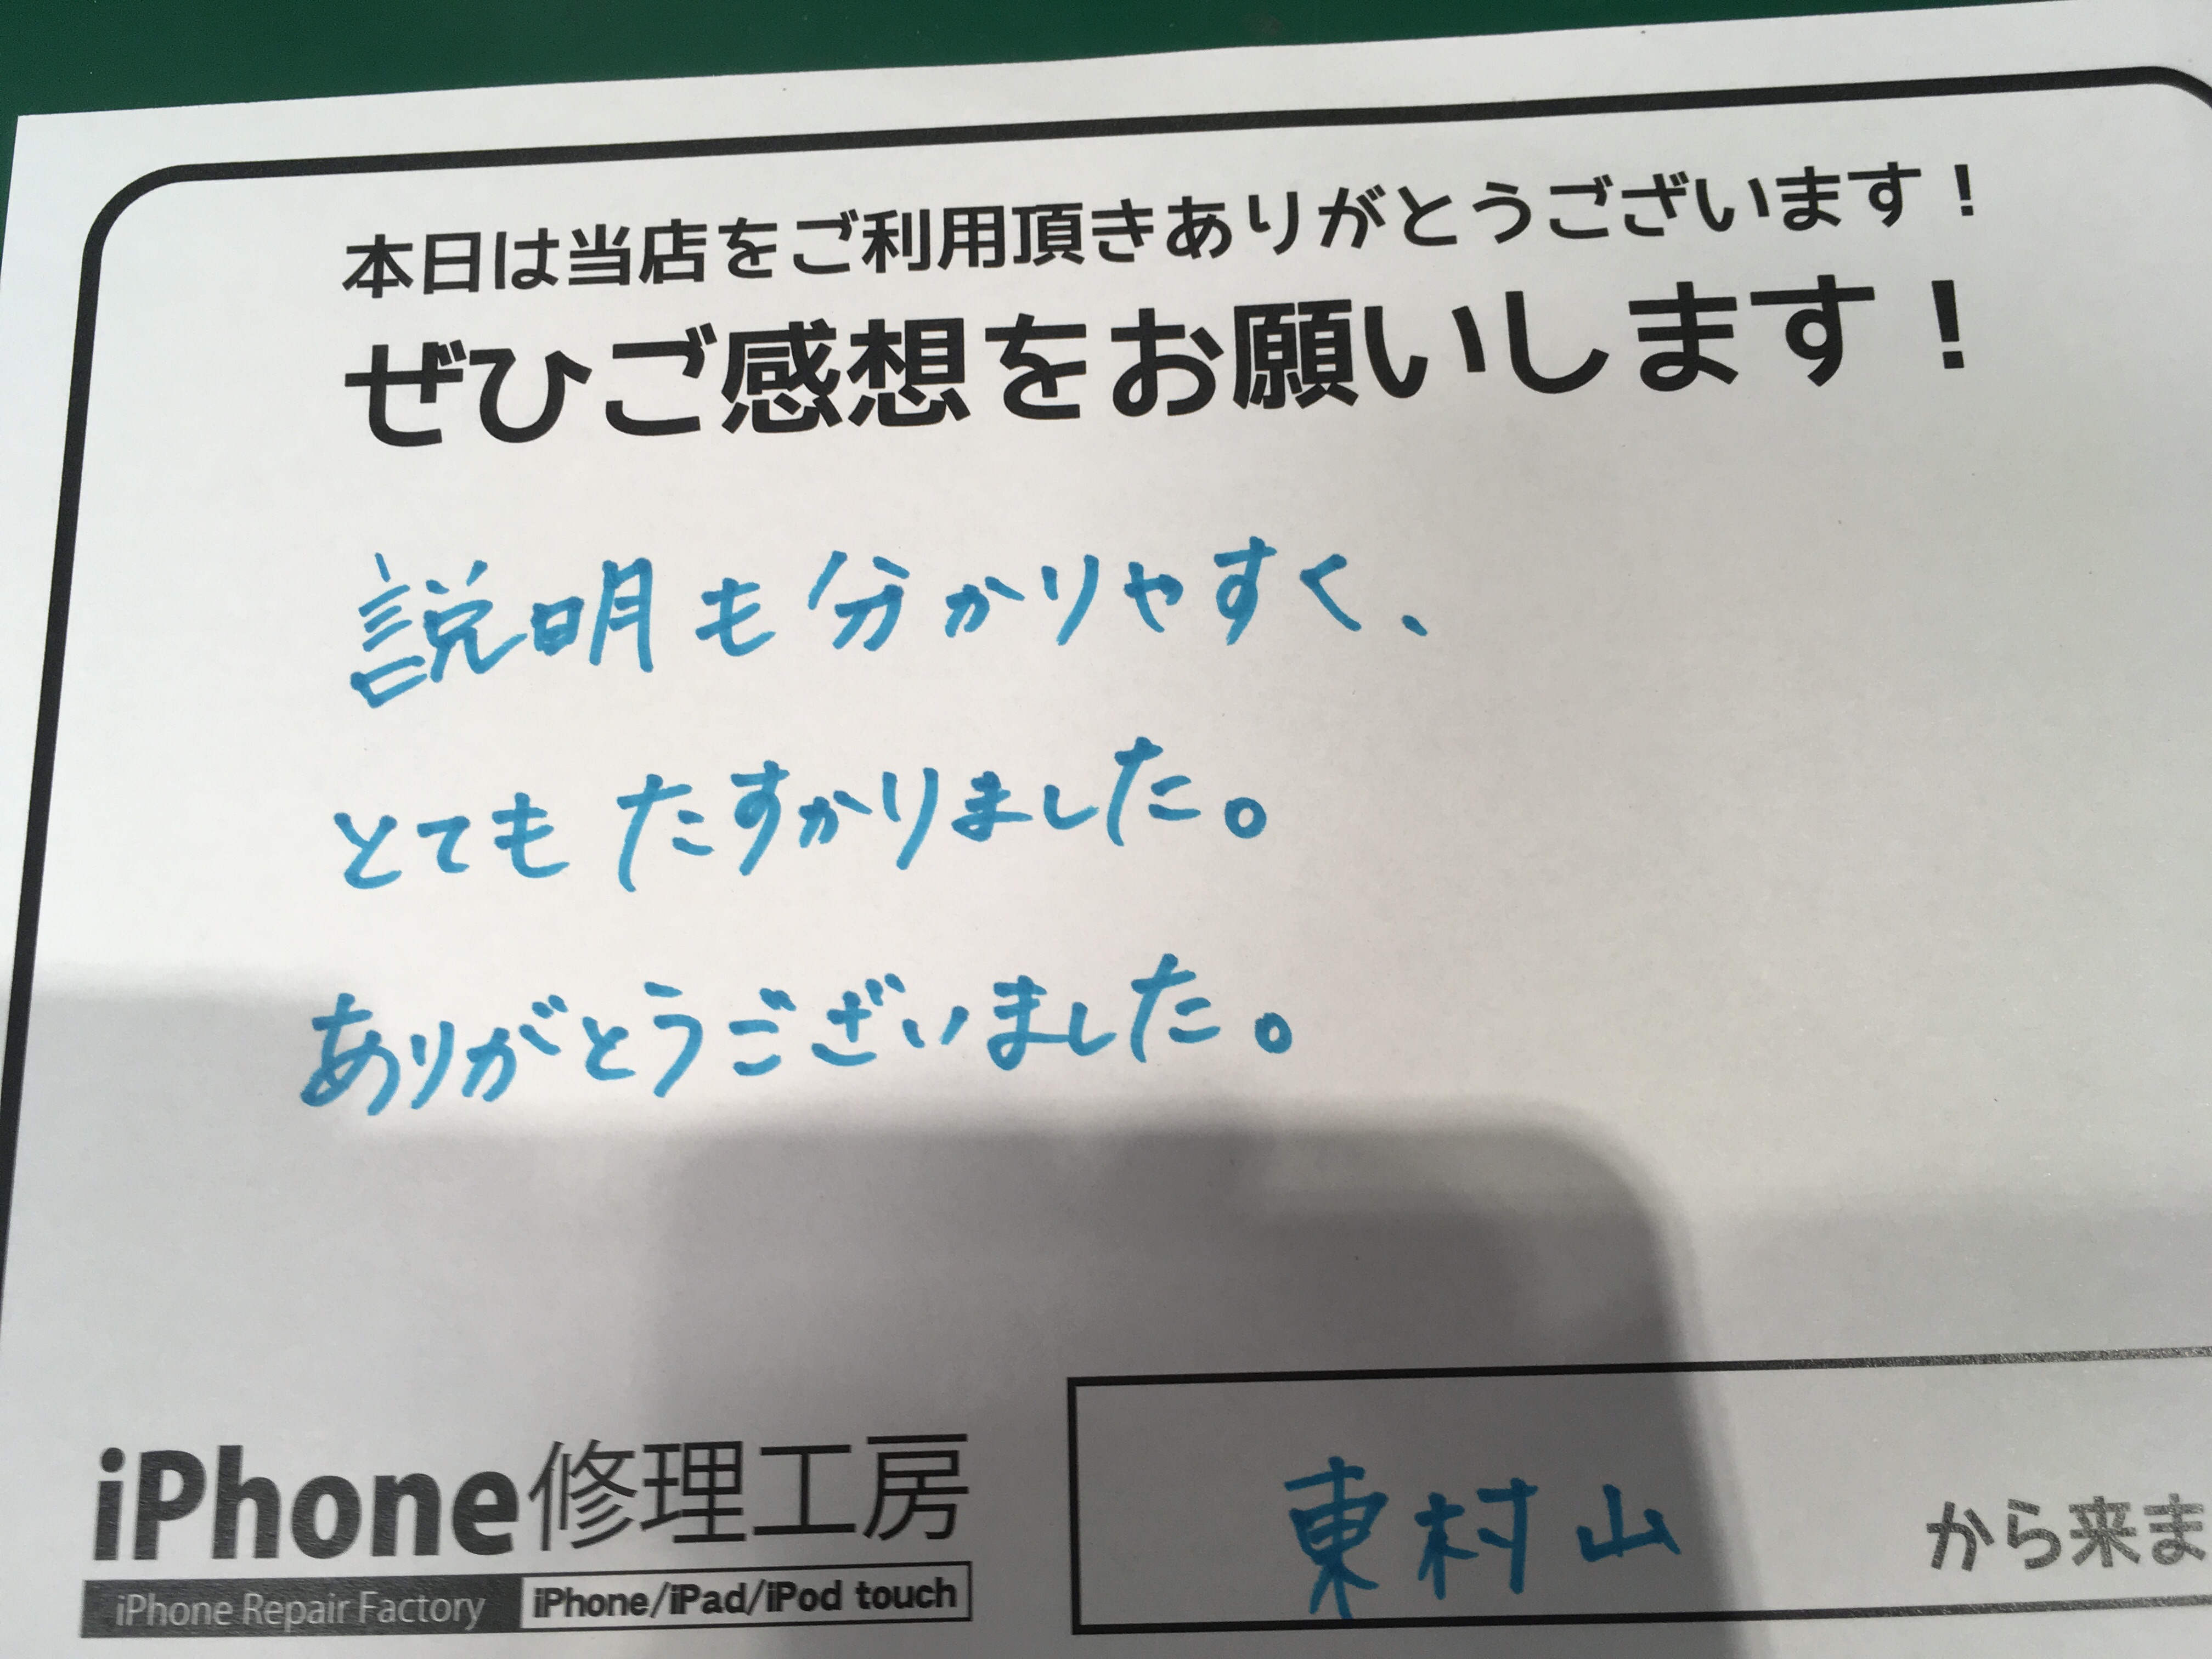 本日は当店をご利用頂きありがとうございます！
ぜひご感想をお願いします！
説明も分かりやすく、
とてもたすかりました。
ありがとうございました。
iPhone修理工房
iPhone Repair Factory iPhone/iPad/iPod touch
東村山 から来ま